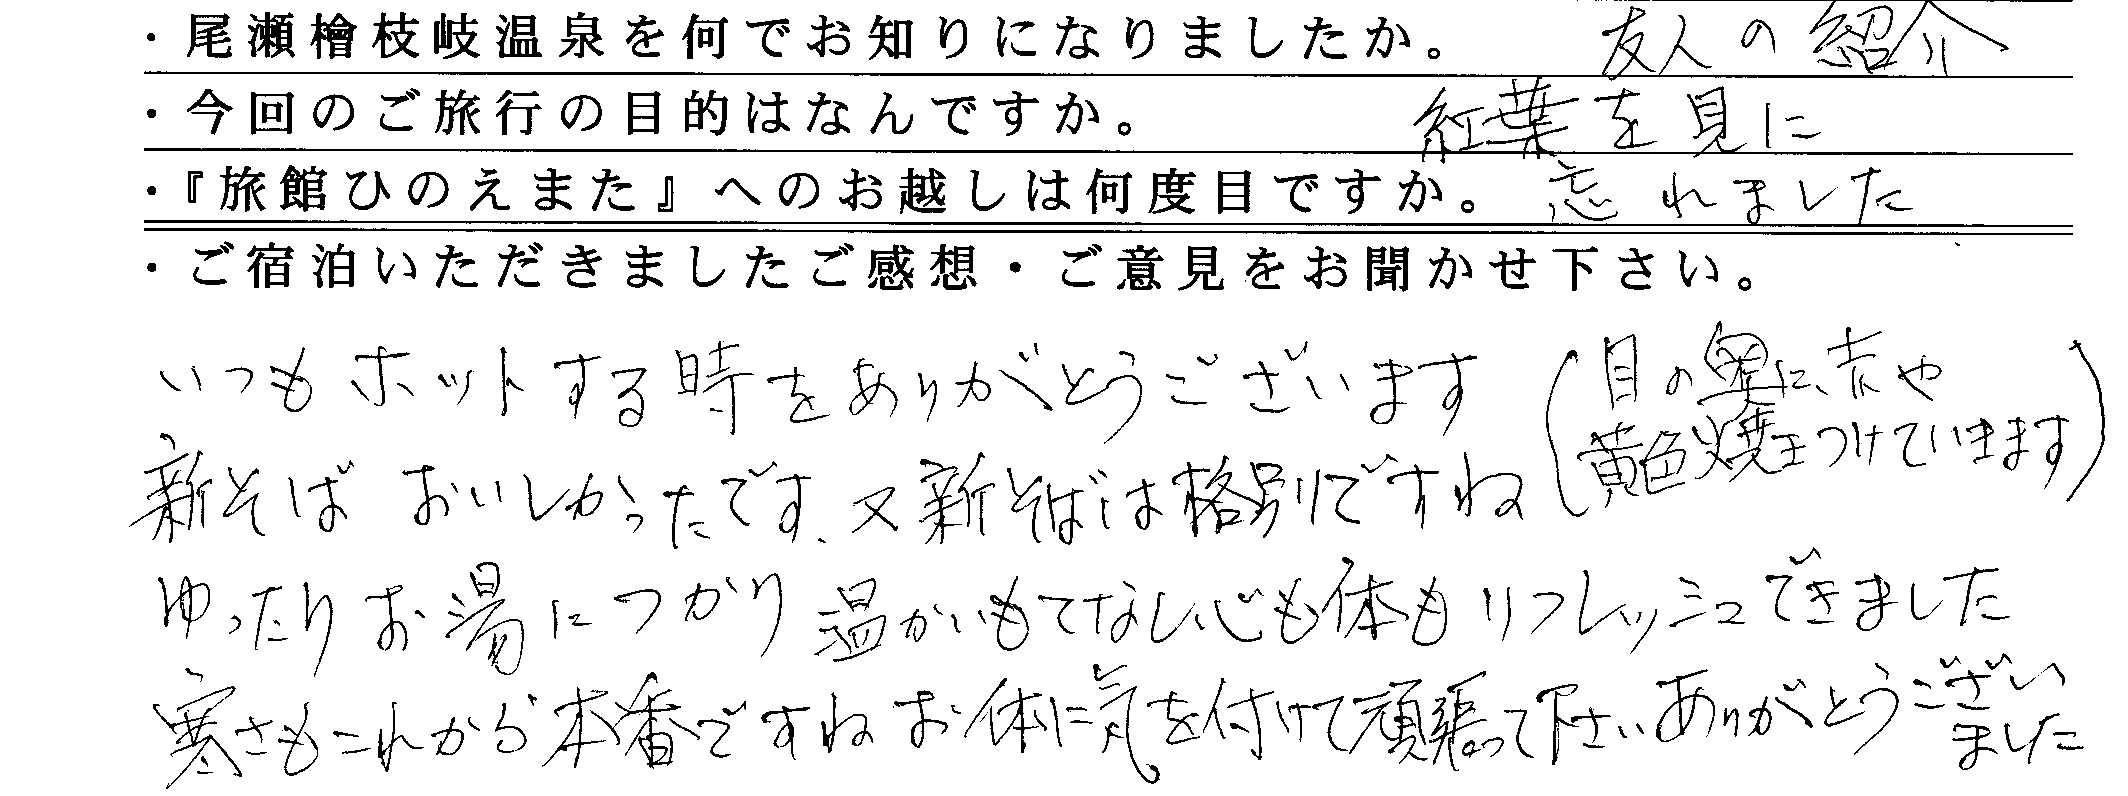 ・尾瀬檜枝岐温泉を何でお知りになりましたか。 友人の紹介
・今回のご旅行の目的はなんですか。 紅葉を見に
・『旅館ひのえまた』へのお越しは何度目ですか。 忘れました
・ご宿泊いただきましたご感想・ご意見をお聞かせ下さい。
いつもホットする時をありがとうございます
(目の奥に、赤や
黄色焼きつけていきます)
新そば おいしかったです、又新そばは格別ですね
ゆったりお湯につかり温かいもてなし心も体もリフレッシュできました
寒さもこれから本番ですねお体に気を付けて頑張って下さいありがとうござい
ました